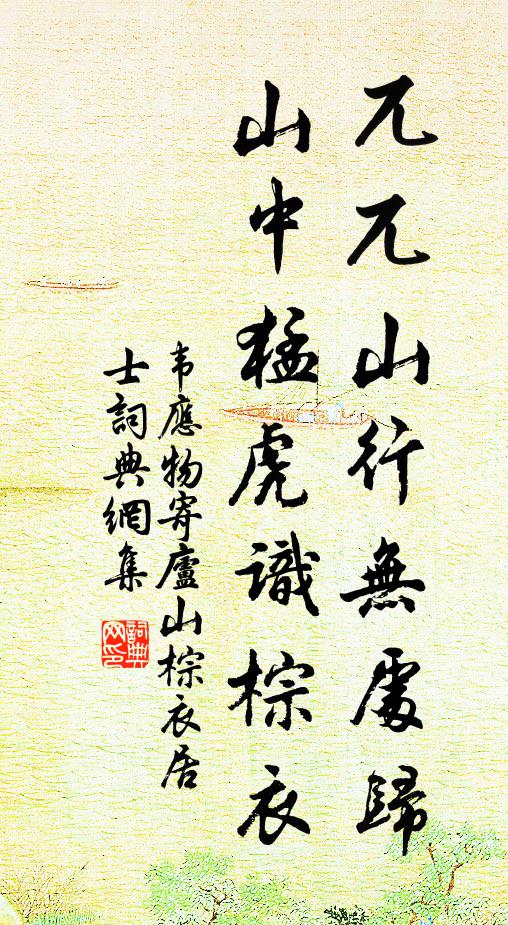 兀兀山行無處歸
山中猛虎識棕衣
韦應物寄廬山棕衣居
士詞典網集
詞典网印